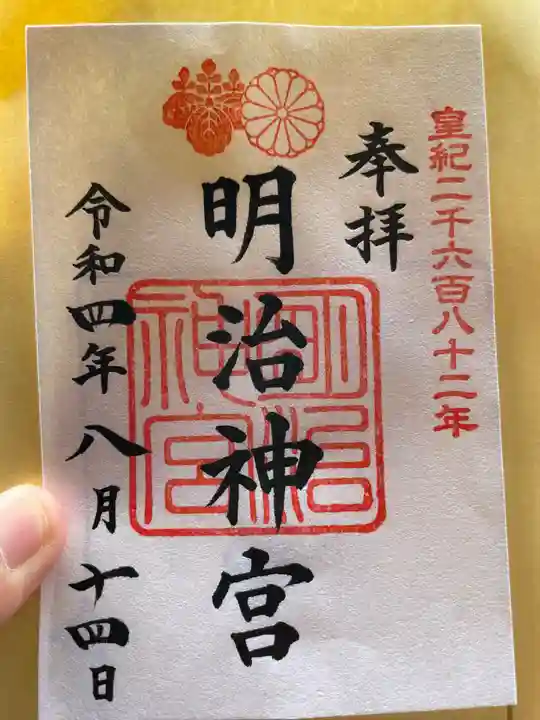 皇紀二千六百八十二年
奉拝
明治神宮
明治神宮
令和四年八月十四日